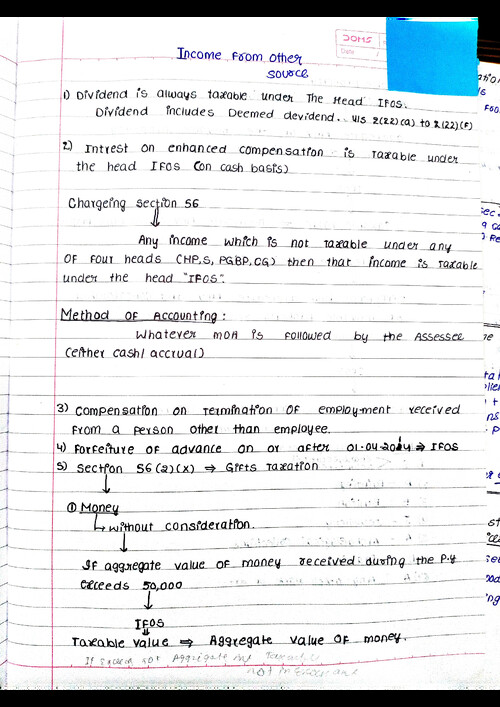 DOMS
Date
Income From Other
source
1) Dividend is always taxable under The Head IFOS.
Dividend includes Deemed devidend. U/s 2(22)(a) to 2(22)(F)
2) Intrest on enhanced compensation is Taxable under
the head IFOS (on cash basis)
Chargeing section 56
Any income which is not taxable under any
OF FOUR heads (HP, S, PGBP, CG) then that income is Taxable
under the head "IFOS".
Method OF Accounting :
Whatever MOA is Followed by the Assessee
(either cash/accrual)
3) Compensation on Termination OF employment received
From a person other than employee.
4) Forfeiture of advance on or after 01.04.2014 ⇒ IFOS
5) Section 56(2)(X) ⇒ Gifts Taxation
① Money
without consideration.
If aggregate value of money received during the P.Y
exceeds 50,000
IFOS
Taxable value ⇒ Aggregate value OF money.